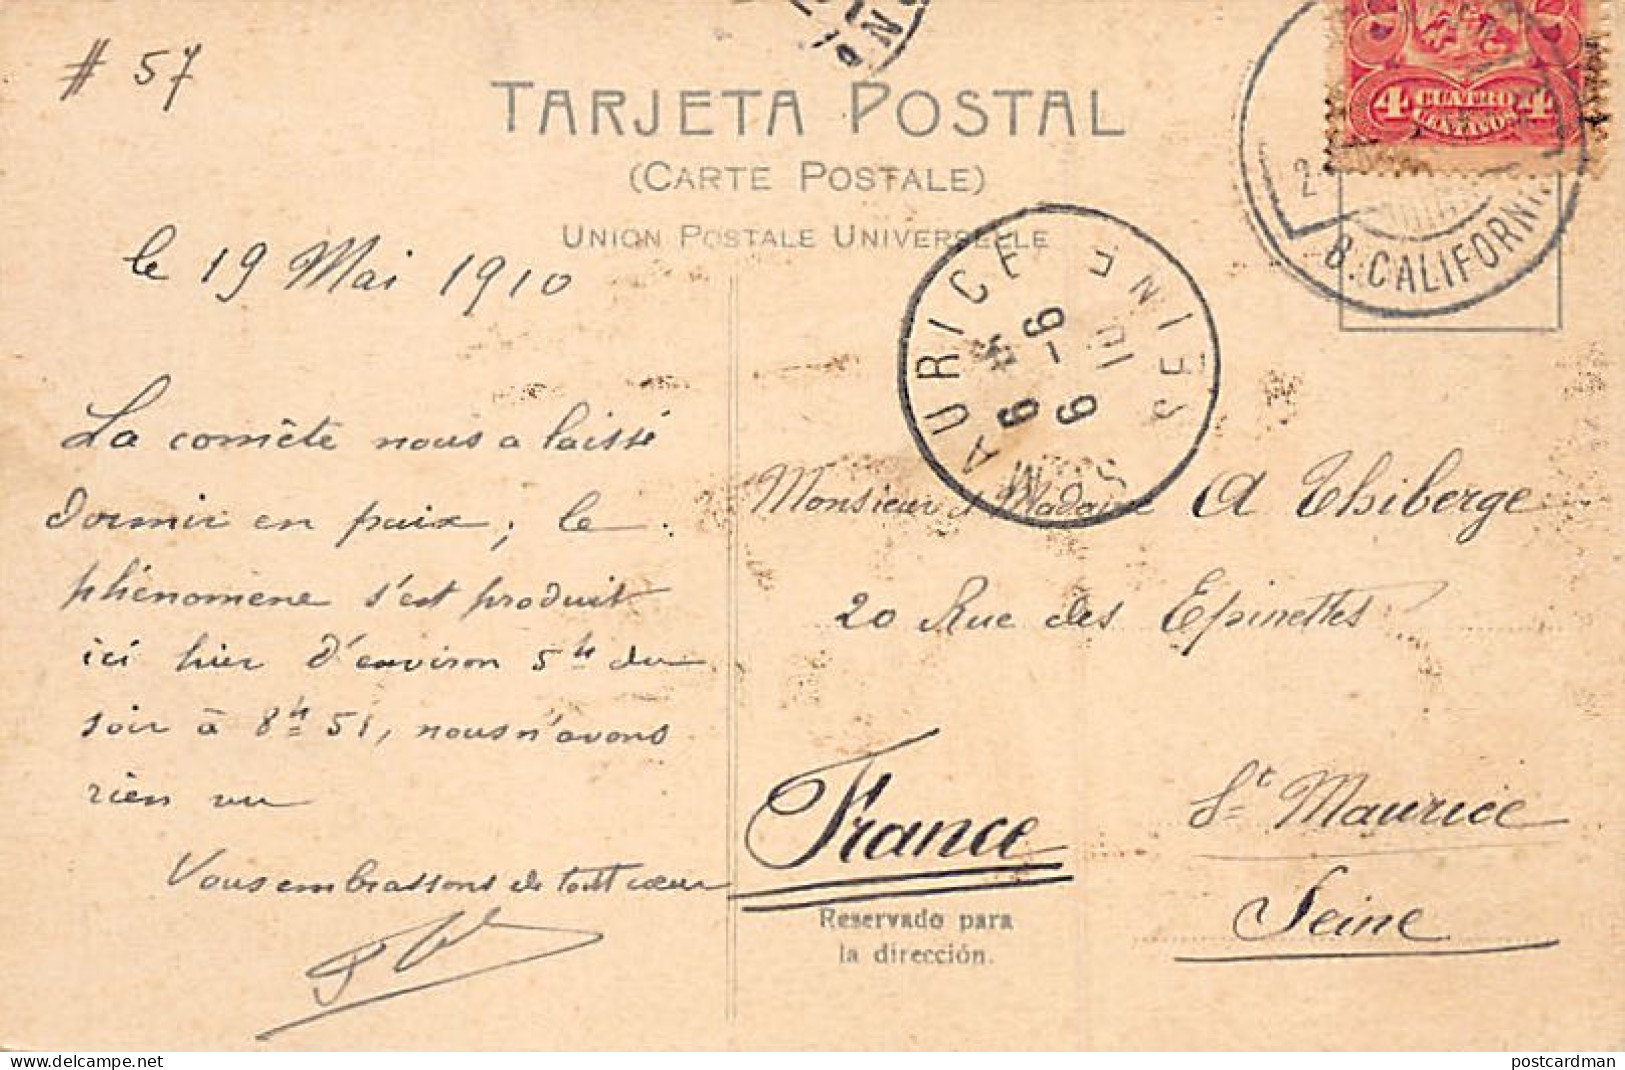 # 57
TARJETA POSTAL
(CARTE POSTALE)
UNION POSTALE UNIVERSELLE
4 CUATRO 4
CENTAVOS
B. CALIFORNI
le 19 Mai 1910
AURICE SEINE
La comète nous a laissé
dormir en paix, le
phénomène s'est produit
ici hier d'environ 5h du
soir à 8h 51, nous n'avons
rien vu
Vous embrassons de tout cœur
Monsieur & Madame A Thiberge
20 Rue des Epinettes
St Maurice
Seine
France
Reservado para
la dirección.
delcampe.net
postcardman